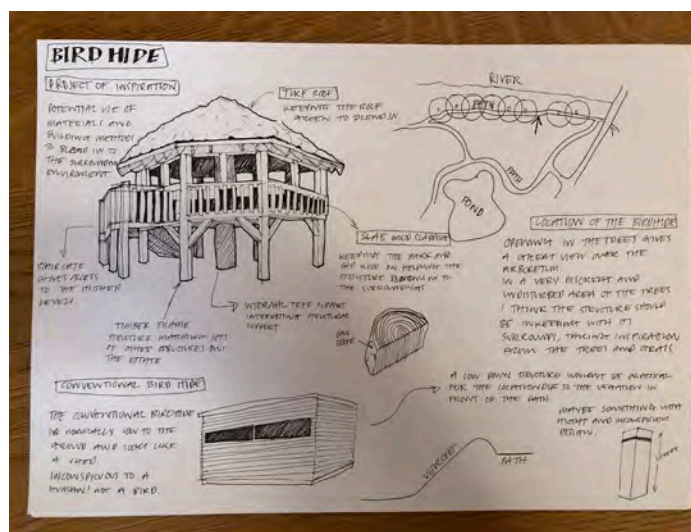 BIRD HIDE
PROJECT OF INSPIRATION
POTENTIAL USE OF
MATERIALS AND
BUILDING METHODS
TO BLEND IN TO
THE SURROUNDING
ENVIRONMENT.
TURF ROOF
KEEPING THE ROOF
GREEN TO BLEND IN
STAIRCASE
GIVES ACCESS
TO THE HIGHER
LEVEL.
TIMBER FRAME
STRUCTURE MATCHING
OF OTHER STRUCTURES
ESTATE
INTERNAL TREE
STRUCTURAL
SUPPORT
SLAB WOOD CLADDING
KEEPING THE BARK AND
SAP WOOD ON HELPING THE
STRUCTURE BLEND IN TO
THE SURROUNDINGS
RIVER
PATH
PATH
POND
LOCATION OF THE BIRDHIDE
OPENING IN THE TREES GIVES
A GREAT VIEW OVER THE
ARBORETUM
IN A VERY DISCREET AND
UNDISTURBED AREA OF THE TREES
I THINK THE STRUCTURE SHOULD
BE IN KEEPING WITH IT'S
SURROUNDS, TAKING INSPIRATION
FROM THE TREES AND
CONVENTIONAL BIRD HIDE
THE CONVENTIONAL BIRDHIDE
IS NORMALLY LOW TO THE
GROUND AND LOOKS LIKE
A SHED.
INCONSPICUOUS TO A
HUMAN! NOT A BIRD.
A LOW DOWN STRUCTURE WOULDN'T BE PRACTICAL
FOR THE LOCATION DUE TO THE VEGETATION IN
FRONT OF THE PATH.
VERGE
PATH
MAYBE SOMETHING WITH
HEIGHT AND